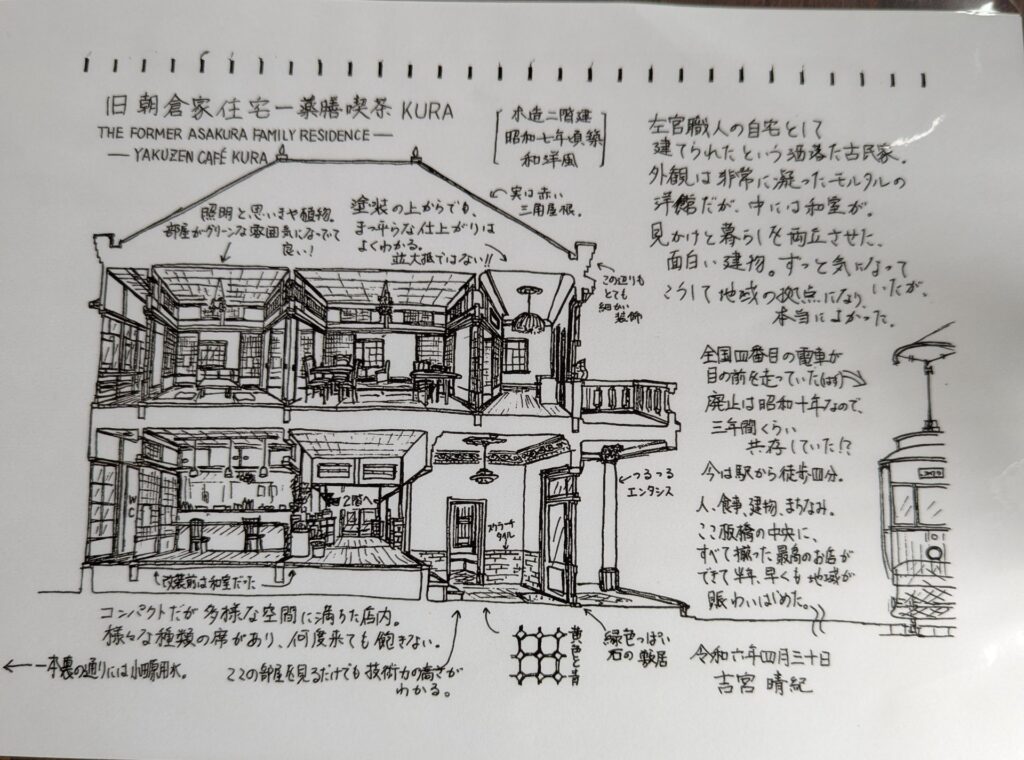 旧朝倉家住宅ー薬膳喫茶 KURA
THE FORMER ASAKURA FAMILY RESIDENCE—
—YAKUZEN CAFÉ KURA
木造二階建
昭和七年頃築
和洋風
左官職人の自宅として
建てられたという洒落た古民家。
外観は非常に凝ったモルタルの
洋館だが、中には和室が。
見かけと暮らしを両立させた、
面白い建物。ずっと気になって
いたが、
こうして地域の拠点になり、
本当によかった。
実は赤い
三角屋根。
照明と思いきや植物。
部屋がグリーンな雰囲気になってて
良い!
塗装の上からでも、
まっ平らな仕上がりは
よくわかる。
並大抵ではない!!
この辺りも
とても
細かい
装飾
全国四番目の電車が
目の前を走っていた(はず)
廃止は昭和十年なので、
三年間くらい
共存していた!?
今は駅から徒歩四分。
つるつる
エンタシス
人、食事、建物、まちなみ。
ここ板橋の中央に、
すべて揃った最高のお店が
できて半年、早くも地域が
賑わいはじめた。
WC
2階へ
スクラッチ
タイル
改装前は和室だった
コンパクトだが多様な空間に満ちた店内。
様々な種類の席があり、何度来ても飽きない。
一本裏の通りには小田原用水。
ここの部屋を見るだけでも技術力の高さが
わかる。
黄色と青
緑色っぽい
石の敷居
令和六年四月三十日
吉宮 晴紀